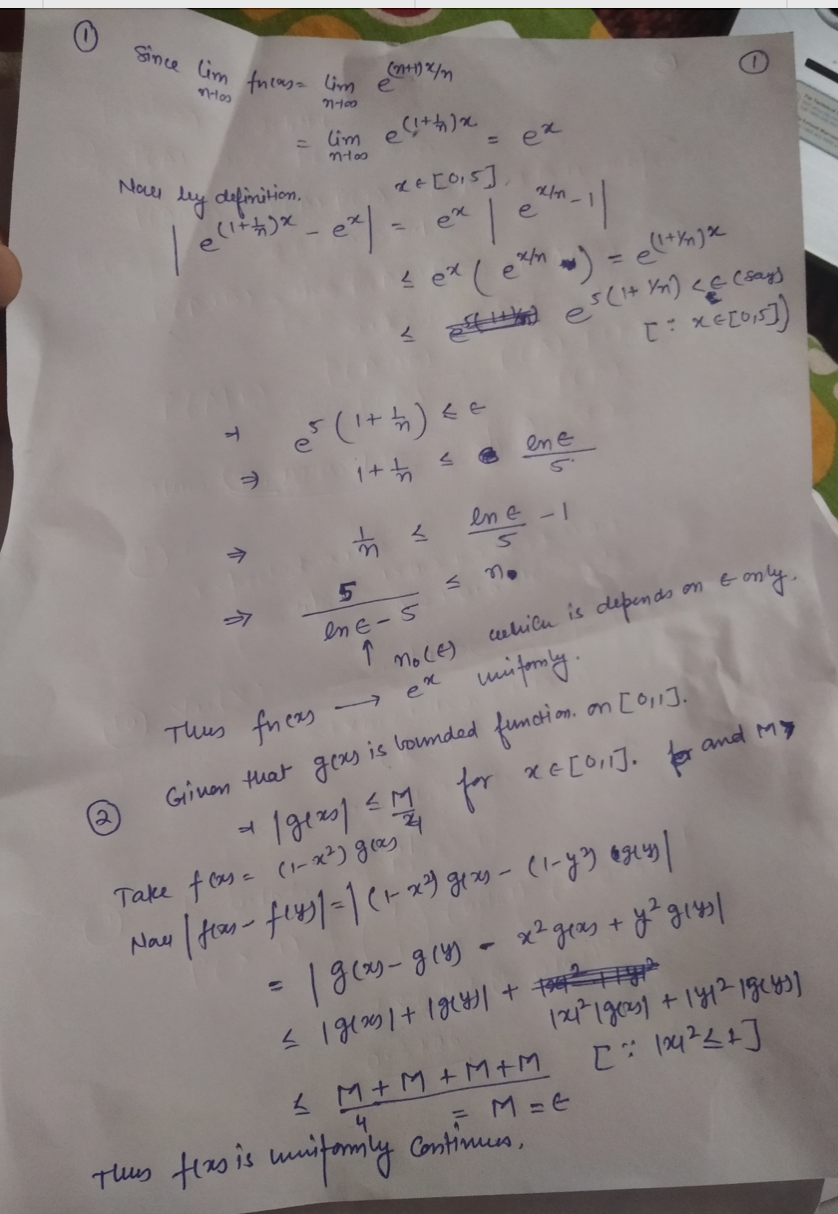 ① ①
Since lim n→∞ fn(x) = lim n→∞ e^((n+1)x/n)
= lim n→∞ e^((1+1/n)x) = e^x
Now by definition. x ∈ [0,5].
|e^((1+1/n)x) - e^x| = e^x |e^(x/n) - 1|
≤ e^x (e^(x/n)) = e^((1+1/n)x)
≤ e^(5(1+1/n)) < ε (say)
[∵ x ∈ [0,5])
⇒ e^5(1+1/n) ≤ ε
⇒ 1 + 1/n ≤ ln ε / 5
⇒ 1/n ≤ ln ε / 5 - 1
⇒ 5 / (ln ε - 5) ≤ n.
↑ n₀(ε) which is depends on ε only.
Thus fn(x) → e^x uniformly.
② Given that g(x) is bounded function. on [0,1].
⇒ |g(x)| ≤ M/4 for x ∈ [0,1]. and M>
Take f(x) = (1-x²) g(x)
Now |f(x) - f(y)| = |(1-x²) g(x) - (1-y²) g(y)|
= |g(x) - g(y) - x² g(x) + y² g(y)|
≤ |g(x)| + |g(y)| + |x|² |g(x)| + |y|² |g(y)|
≤ (M + M + M + M)/4 [∵ |x|² ≤ 1]
= M = ε
Thus f(x) is uniformly continues.